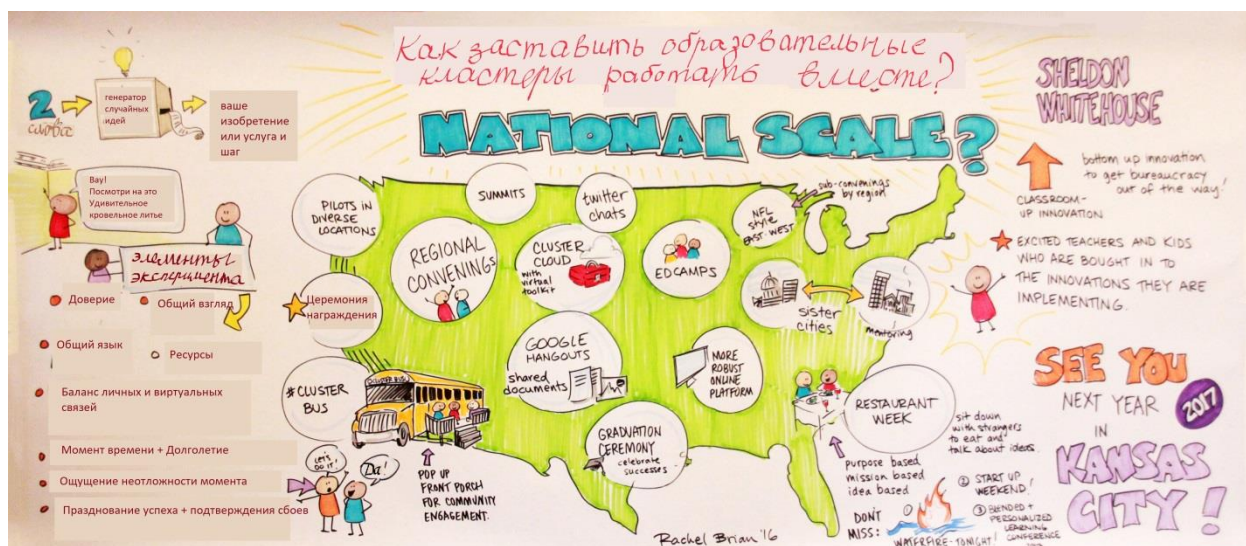 Как заставить образовательные
кластеры работать вместе?
NATIONAL SCALE?
2
слова
генератор
случайных
идей
ваше
изобретение
или услуга и
шаг
Вау!
Посмотри на это
Удивительное
кровельное литье
элементы
эксперимента
Доверие
Общий взгляд
Общий язык
Ресурсы
Баланс личных и виртуальных
связей
Момент времени + Долголетие
Ощущение неотложности момента
Празднование успеха + подтверждения сбоев
Церемония
награждения
PILOTS IN
DIVERSE
LOCATIONS
SUMMITS
twitter
chats
NFL
style
EAST-WEST
sub-convenings
by region
REGIONAL
CONVENINGS
CLUSTER
CLOUD
with
virtual
toolkit
EDCAMPS
sister
cities
mentoring
GOOGLE
HANGOUTS
shared
documents
MORE
ROBUST
ONLINE
PLATFORM
#CLUSTER
BUS
CLUSTER BUS
LET'S
DO IT!
Да!
POP UP
FRONT PORCH
FOR COMMUNITY
ENGAGEMENT.
GRADUATION
CEREMONY
celebrate
successes
RESTAURANT
WEEK
sit down
with strangers
to eat and
talk about ideas.
purpose based
mission based
idea based
DON'T
MISS:
①
WATERFIRE-TONIGHT!
② START UP
WEEKEND!
③ BLENDED +
PERSONALIZED
LEARNING
CONFERENCE
Rachel Brian '16
SHELDON
WHITEHOUSE
bottom up innovation
to get bureaucracy
out of the way!
CLASSROOM-
UP INNOVATION
EXCITED TEACHERS AND KIDS
WHO ARE BOUGHT IN TO
THE INNOVATIONS THEY ARE
IMPLEMENTING.
SEE YOU
NEXT YEAR
2017
IN
KANSAS
CITY!